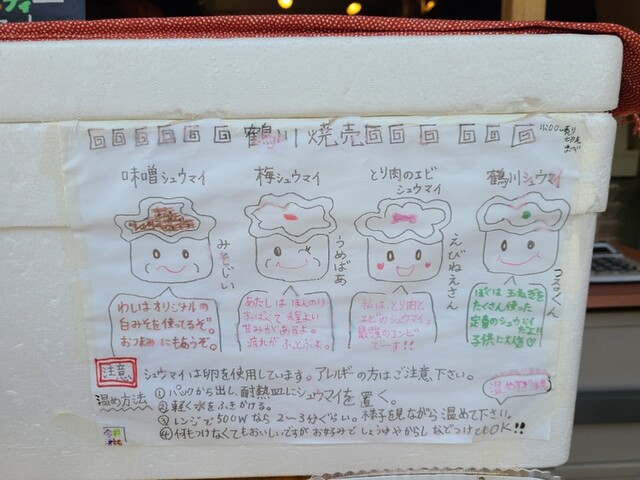 鶴川焼売
11:00〜売り切れまで
味噌シュウマイ
梅シュウマイ
とり肉のエビシュウマイ
鶴川シュウマイ
みそじい
うめばあ
えびねえさん
つるくん
わしはオリジナルの
白みそを使ってるぞ。
おつまみにもあうぞ。
あたしは ほんのり
すっぱくて 程よい
甘みがあるよ。
疲れが ふっとぶよ。
私は、とり肉と
エビのシュウマイ。
最強のコンビ
でーす!!
ぼくは 玉ねぎを
たくさん使った
定番のシュウマイ
だよ!!
子供に人気♡
注意 シュウマイは卵を使用しています。アレルギーの方はご注意下さい。
温め方法
①パックから出し、耐熱皿にシュウマイを置く。
②軽く水をふきかける。
③レンジで500Wなら2〜3分ぐらい。様子を見ながら温めて下さい。
④何もつけなくてもおいしいですがお好みでしょうゆやからしなどつけてもOK!!